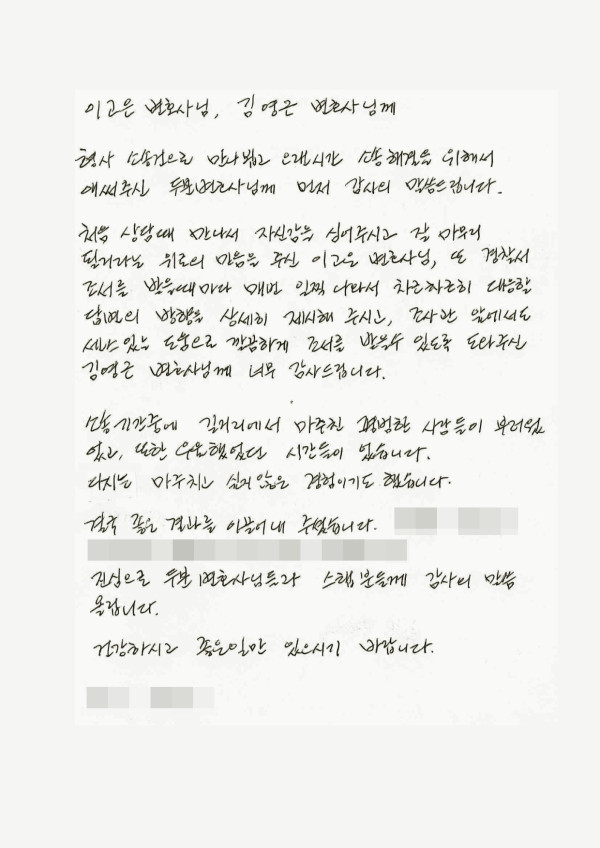 이고은 변호사님, 김영근 변호사님께
형사 소송건으로 만나뵙고 오랜시간 소송해결을 위해서
애써주신 두분변호사님께 먼저 감사의 말씀드립니다.
처음 상담때 만나서 자신감을 심어주시고 잘 마무리
될거라는 위로의 마음을 주신 이고은 변호사님, 또 경찰서
조서를 받을때마다 매번 일찍 나와서 차근차근히 대응할
답변의 방향을 상세히 제시해 주시고, 조사관 앞에서도
센스있는 도움으로 깔끔하게 조서를 받을수 있도록 도와주신
김영근 변호사님께 너무 감사드립니다.
소송기간중에 길거리에서 마주친 평범한 사람들이 부러웠
었고, 또한 우울했었던 시간들이 있습니다.
다시는 마주치고 싶지않은 경험이기도 했습니다.
결국 좋은 결과를 이끌어내 주셨습니다.
진심으로 두분 변호사님들과 스탭분들께 감사의 말씀
올립니다.
건강하시고 좋은일만 있으시기 바랍니다.